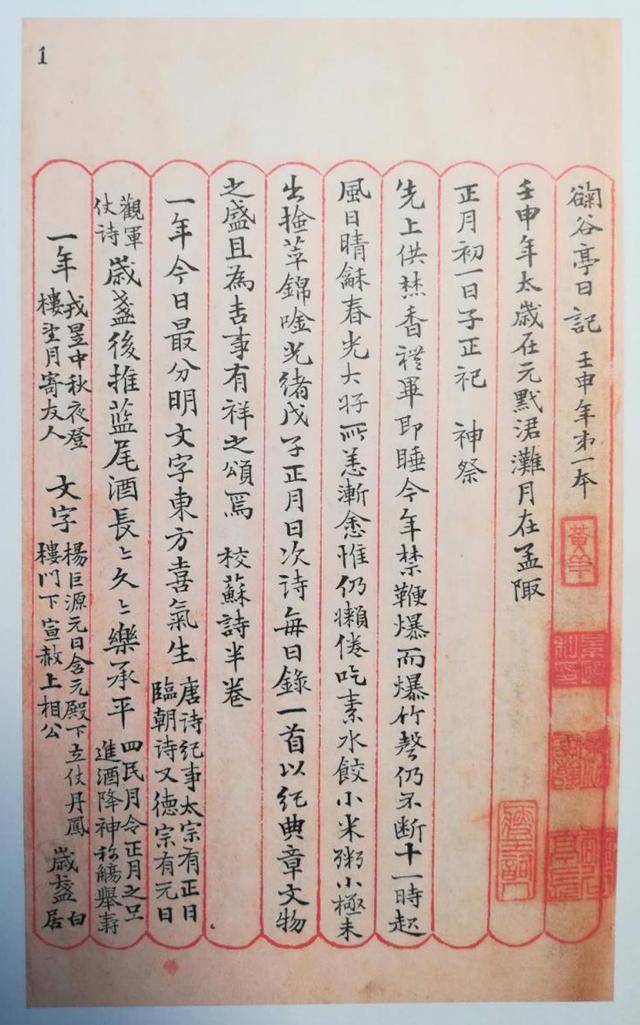 1
蘜谷亭日記 壬申年第一本
壬申年太歲在元黓涒灘月在孟陬
正月初一日子正祀 神祭
先上供焚香禮畢即睡今年禁鞭爆而爆竹聲仍不斷十一時起
風日晴龢春光大好所恙漸愈惟仍懶倦吃素水餃小米粥小極未
出撿萃錦唫光緒戊子正月日次詩每日錄一首以紀典章文物
之盛且為吉事有祥之頌焉 校蘇詩半卷
一年今日最分明文字東方喜氣生 唐詩紀事太宗有正日
臨朝詩又德宗有元日
觀軍
仗詩 歲盞後推藍尾酒長〻久〻樂承平 四民月令正月之旦
進酒降神称觴舉壽
一年 戎昱中秋夜登
樓望月寄友人 文字 楊巨源元日含元殿下立仗丹鳳
樓門下宣赦上相公 歲盞 白
居
黃羊